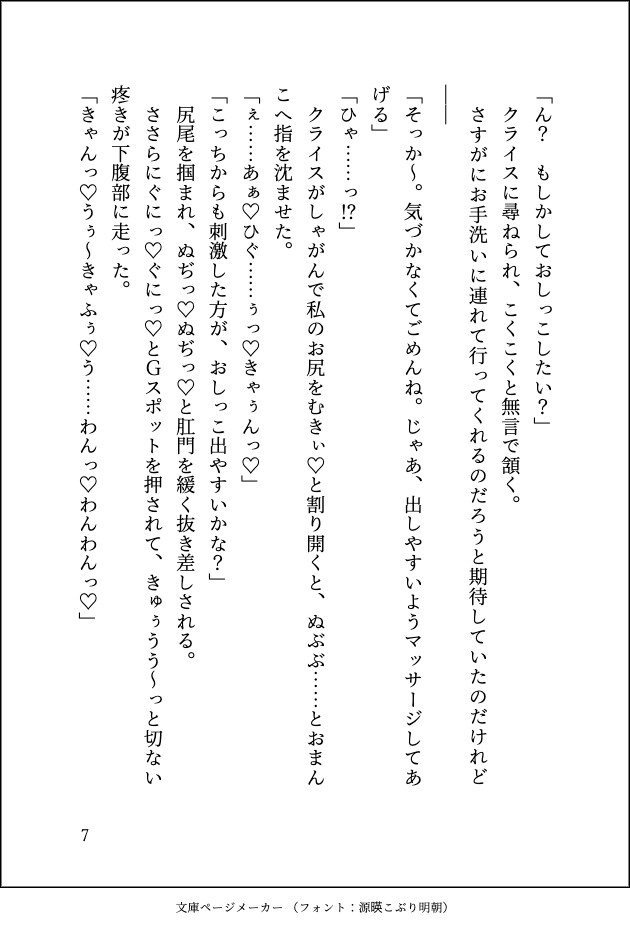 「ん？　もしかしておしっこしたい？」
クライスに尋ねられ、こくこくと無言で頷く。
さすがにお手洗いに連れて行ってくれるのだろうと期待していたのだけれど
――
「そっか～。気づかなくてごめんね。じゃあ、出しやすいようマッサージしてあ
げる」
「ひゃ……っ!?」
クライスがしゃがんで私のお尻をむきぃ♡と割り開くと、ぬぶぶ……とおまん
こへ指を沈ませた。
「ぇ……あぁ♡ひぐ……ぅっ♡きゃぅんっ♡」
「こっちからも刺激した方が、おしっこ出やすいかな？」
尻尾を掴まれ、ぬぢっ♡ぬぢっ♡と肛門を緩く抜き差しされる。
ささらにぐにっ♡ぐにっ♡とＧスポットを押されて、きゅぅうう～っと切ない
疼きが下腹部に走った。
「きゃんっ♡うぅ～きゃふぅ♡う……わんっ♡わんわんっ♡」
7
文庫ページメーカー （フォント：源暎こぶり明朝）